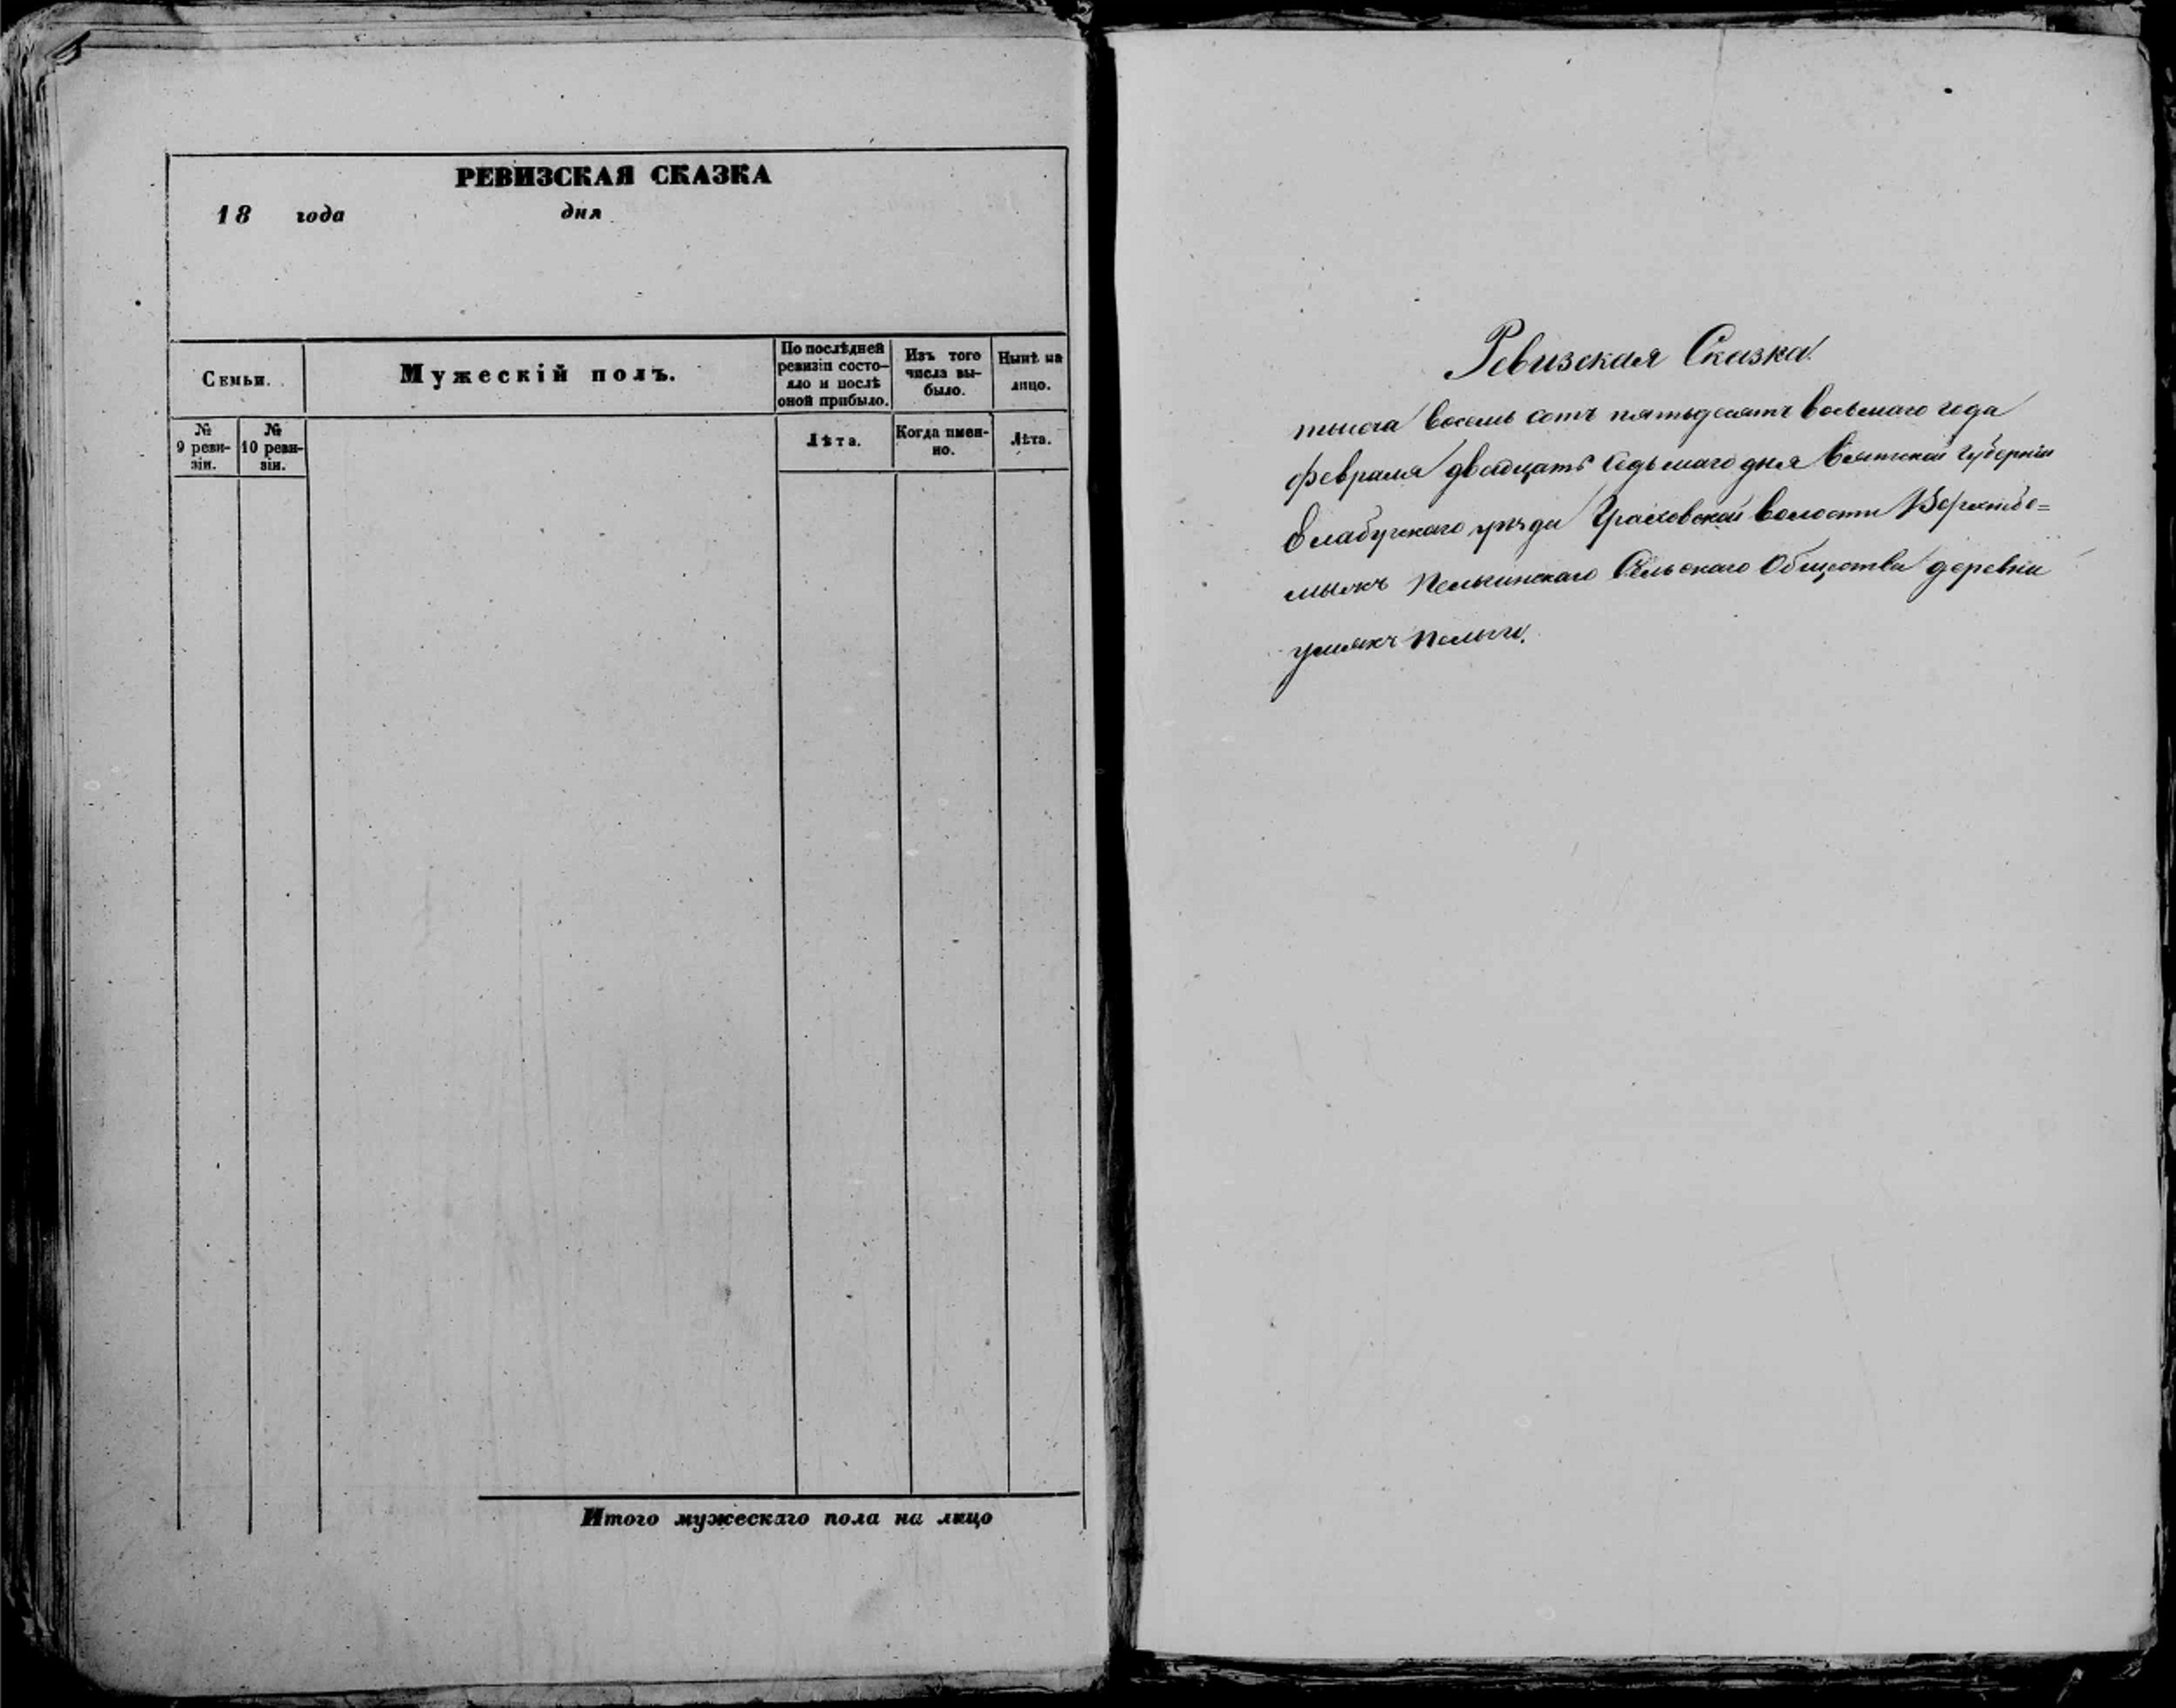 РЕВИЗСКАЯ СКАЗКА
18 года дня
Семьи.
Мужескій полъ.
По послѣдней ревизіи состо-
яло и послѣ
оной прибыло.
Изъ того
числа вы-
было.
Нынѣ на
лицо.
№
9 реви-
зіи.
№
10 реви-
зіи.
Лѣта.
Когда имен-
но.
Лѣта.
Итого мужескаго пола на лицо
Ревизская Сказка
тысяча восемь сотъ пятьдесятъ восьмаго года
февраля двадцать седьмаго дня Вятской Губерніи
Елабужскаго уѣзда Граховской волости
Сельскаго Общества деревни